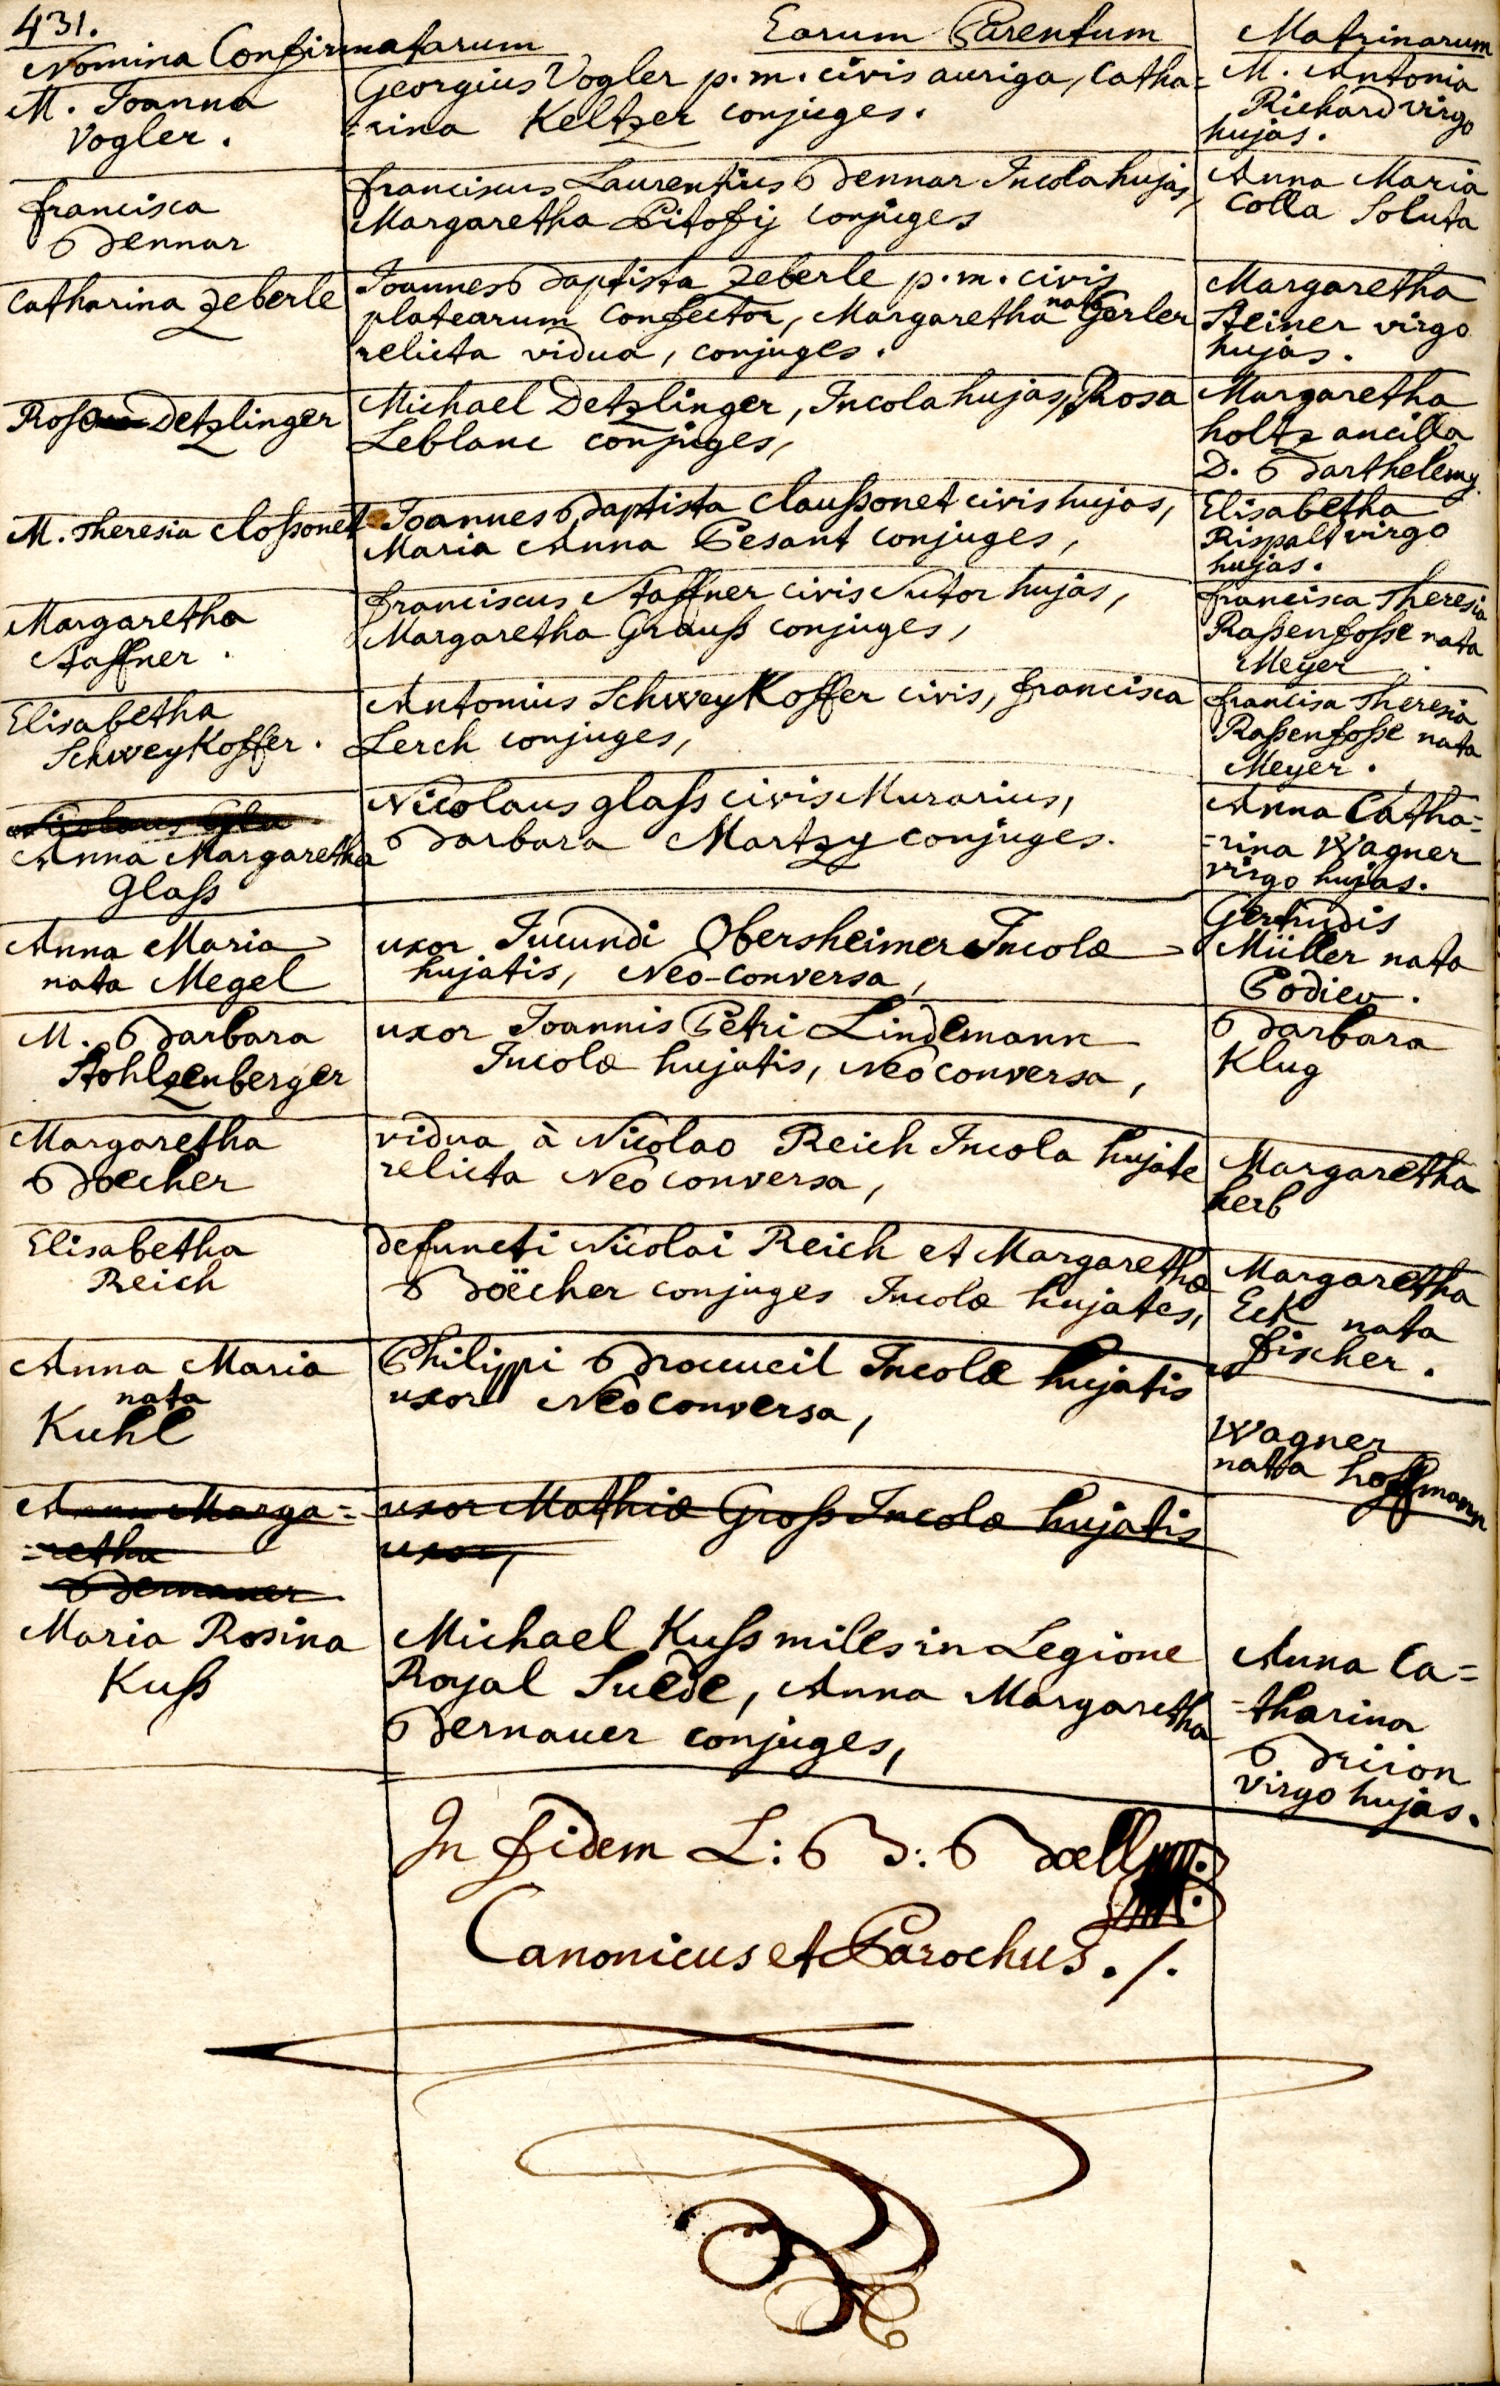 431.
Nomina Confirmatarum
Earum Parentum
Matrinarum
M. Joanna
Vogler.
Georgius Vogler p.m. civis auriga, Catha=
=rina Keltzer conjuges.
M. Antonia
Richard virgo
hujas.
francisca
Bennar
franciscus Laurentius Bennar Incola hujas,
Margaretha Pitofij conjuges
Anna Maria
Colla Soluta
Catharina Zeberle
Joannes Baptista Zeberle p.m. civis
platearum Confector, Margaretha nata Gerler
relicta vidua, conjuges.
Margaretha
Steiner virgo
hujas.
Rosa Detzlinger
Michael Detzlinger, Incola hujas, Rosa
Leblanc conjuges,
Margaretha
holtz ancilla
D. Barthelemy.
M. Theresia Cloßonet
Joannes Baptista Claußonet civis hujas,
Maria Anna Pesant conjuges,
Elisabetha
Rispalt virgo
hujas.
Margaretha
Staffner.
franciscus Staffner civis Sutor hujas,
Margaretha Grauß conjuges,
francisca Theresia
Raßenfoße nata
Meyer
Elisabetha
SchweyKoffer.
Antonius SchweyKoffer civis, francisca
Lerch conjuges,
francisa Theresia
Raßenfoße nata
Meyer.
Anna Margaretha
Glaß
Nicolaus glaß civis Murarius,
Barbara Martzy conjuges.
Anna Catha=
=rina Wagner
virgo hujas.
Anna Maria
nata Megel
uxor Jucundi Obersheimer Incolæ
hujatis, Neo-conversa,
Gertrudis
Müller nata
Podiev.
M. Barbara
Stohlzenberger
uxor Joannis Petri Lindemann
Incolæ hujatis, Neoconversa,
Barbara
Klug
Margaretha
Boecher
vidua à Nicolao Reich Incola hujate
relicta Neoconversa,
Margaretha
herb
Elisabetha
Reich
defuncti Nicolai Reich et Margarethæ
Boëcher conjuges Incolæ hujates,
Margaretha
Eck nata
fischer.
Anna Maria
nata
Kuhl
Philippi Incolæ hujatis
uxor Neoconversa,
Wagner
natta hoffmann
Anna Marga=
=retha
Bernauer
uxor Mathiæ Groß Incolæ hujatis
uxor,
Maria Rosina
Kuß
Michael Kuß miles in Legione
Royal Suede, Anna Margaretha
Bernauer conjuges,
Anna Ca=
=tharina
virgo hujas.
In fidem L: B: Boell
Canonicus et Parochus ./.